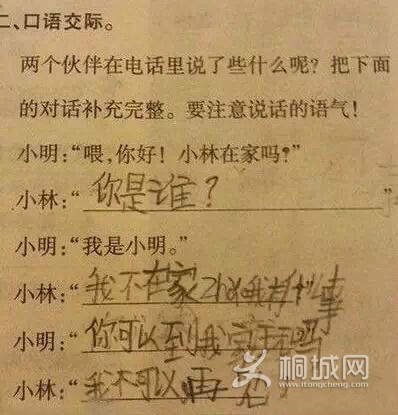 二、口语交际。
两个伙伴在电话里说了些什么呢？把下面
的对话补充完整。要注意说话的语气！
小明：“喂，你好！小林在家吗？”
小林：“你是谁？”
小明：“我是小明。”
小林：“我不在家 我有什么事
小明：“你可以到我家 吗
小林：“我不可以
桐城网
www.itongcheng.com